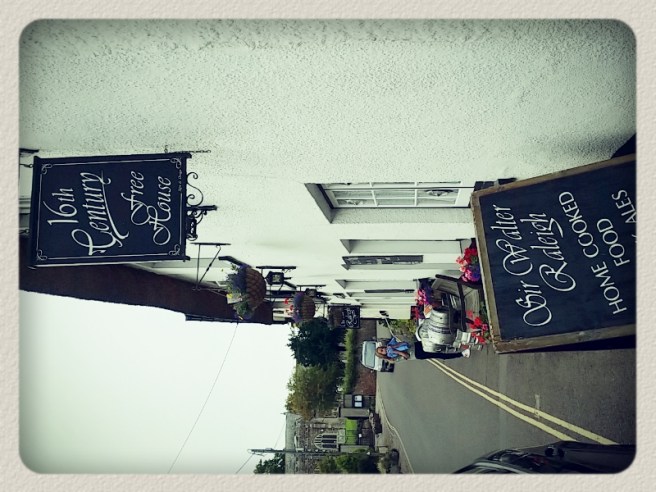 16th
Century
Free
House
Sir Walter
Raleigh
HOME COOKED
FOOD
ALES